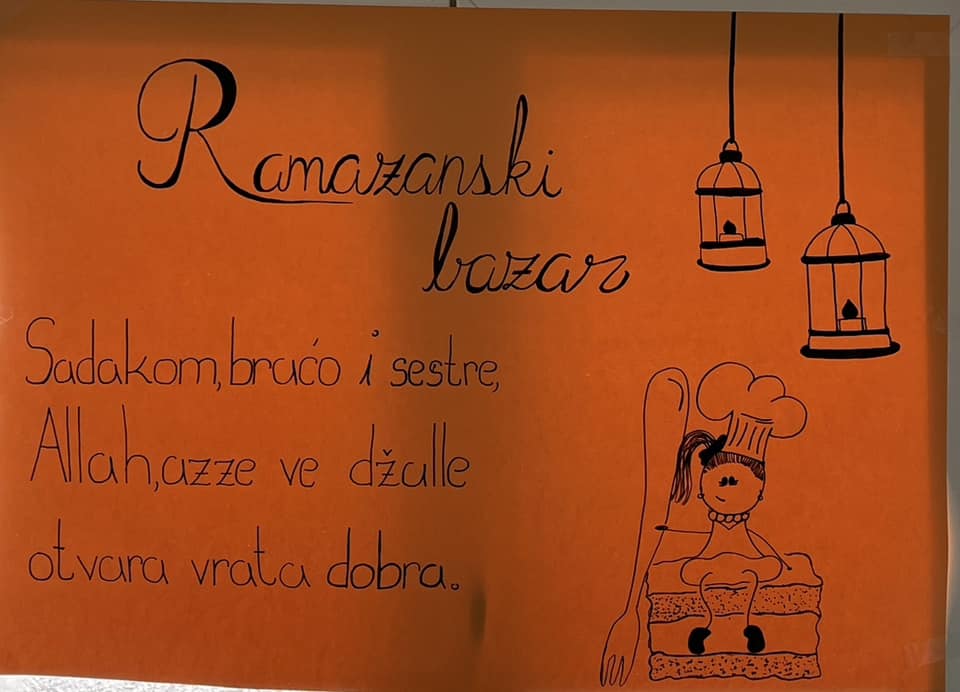 Ramazanski
bazar
Sadakom, braćo i sestre,
Allah, azze ve džalle
otvara vrata dobra.